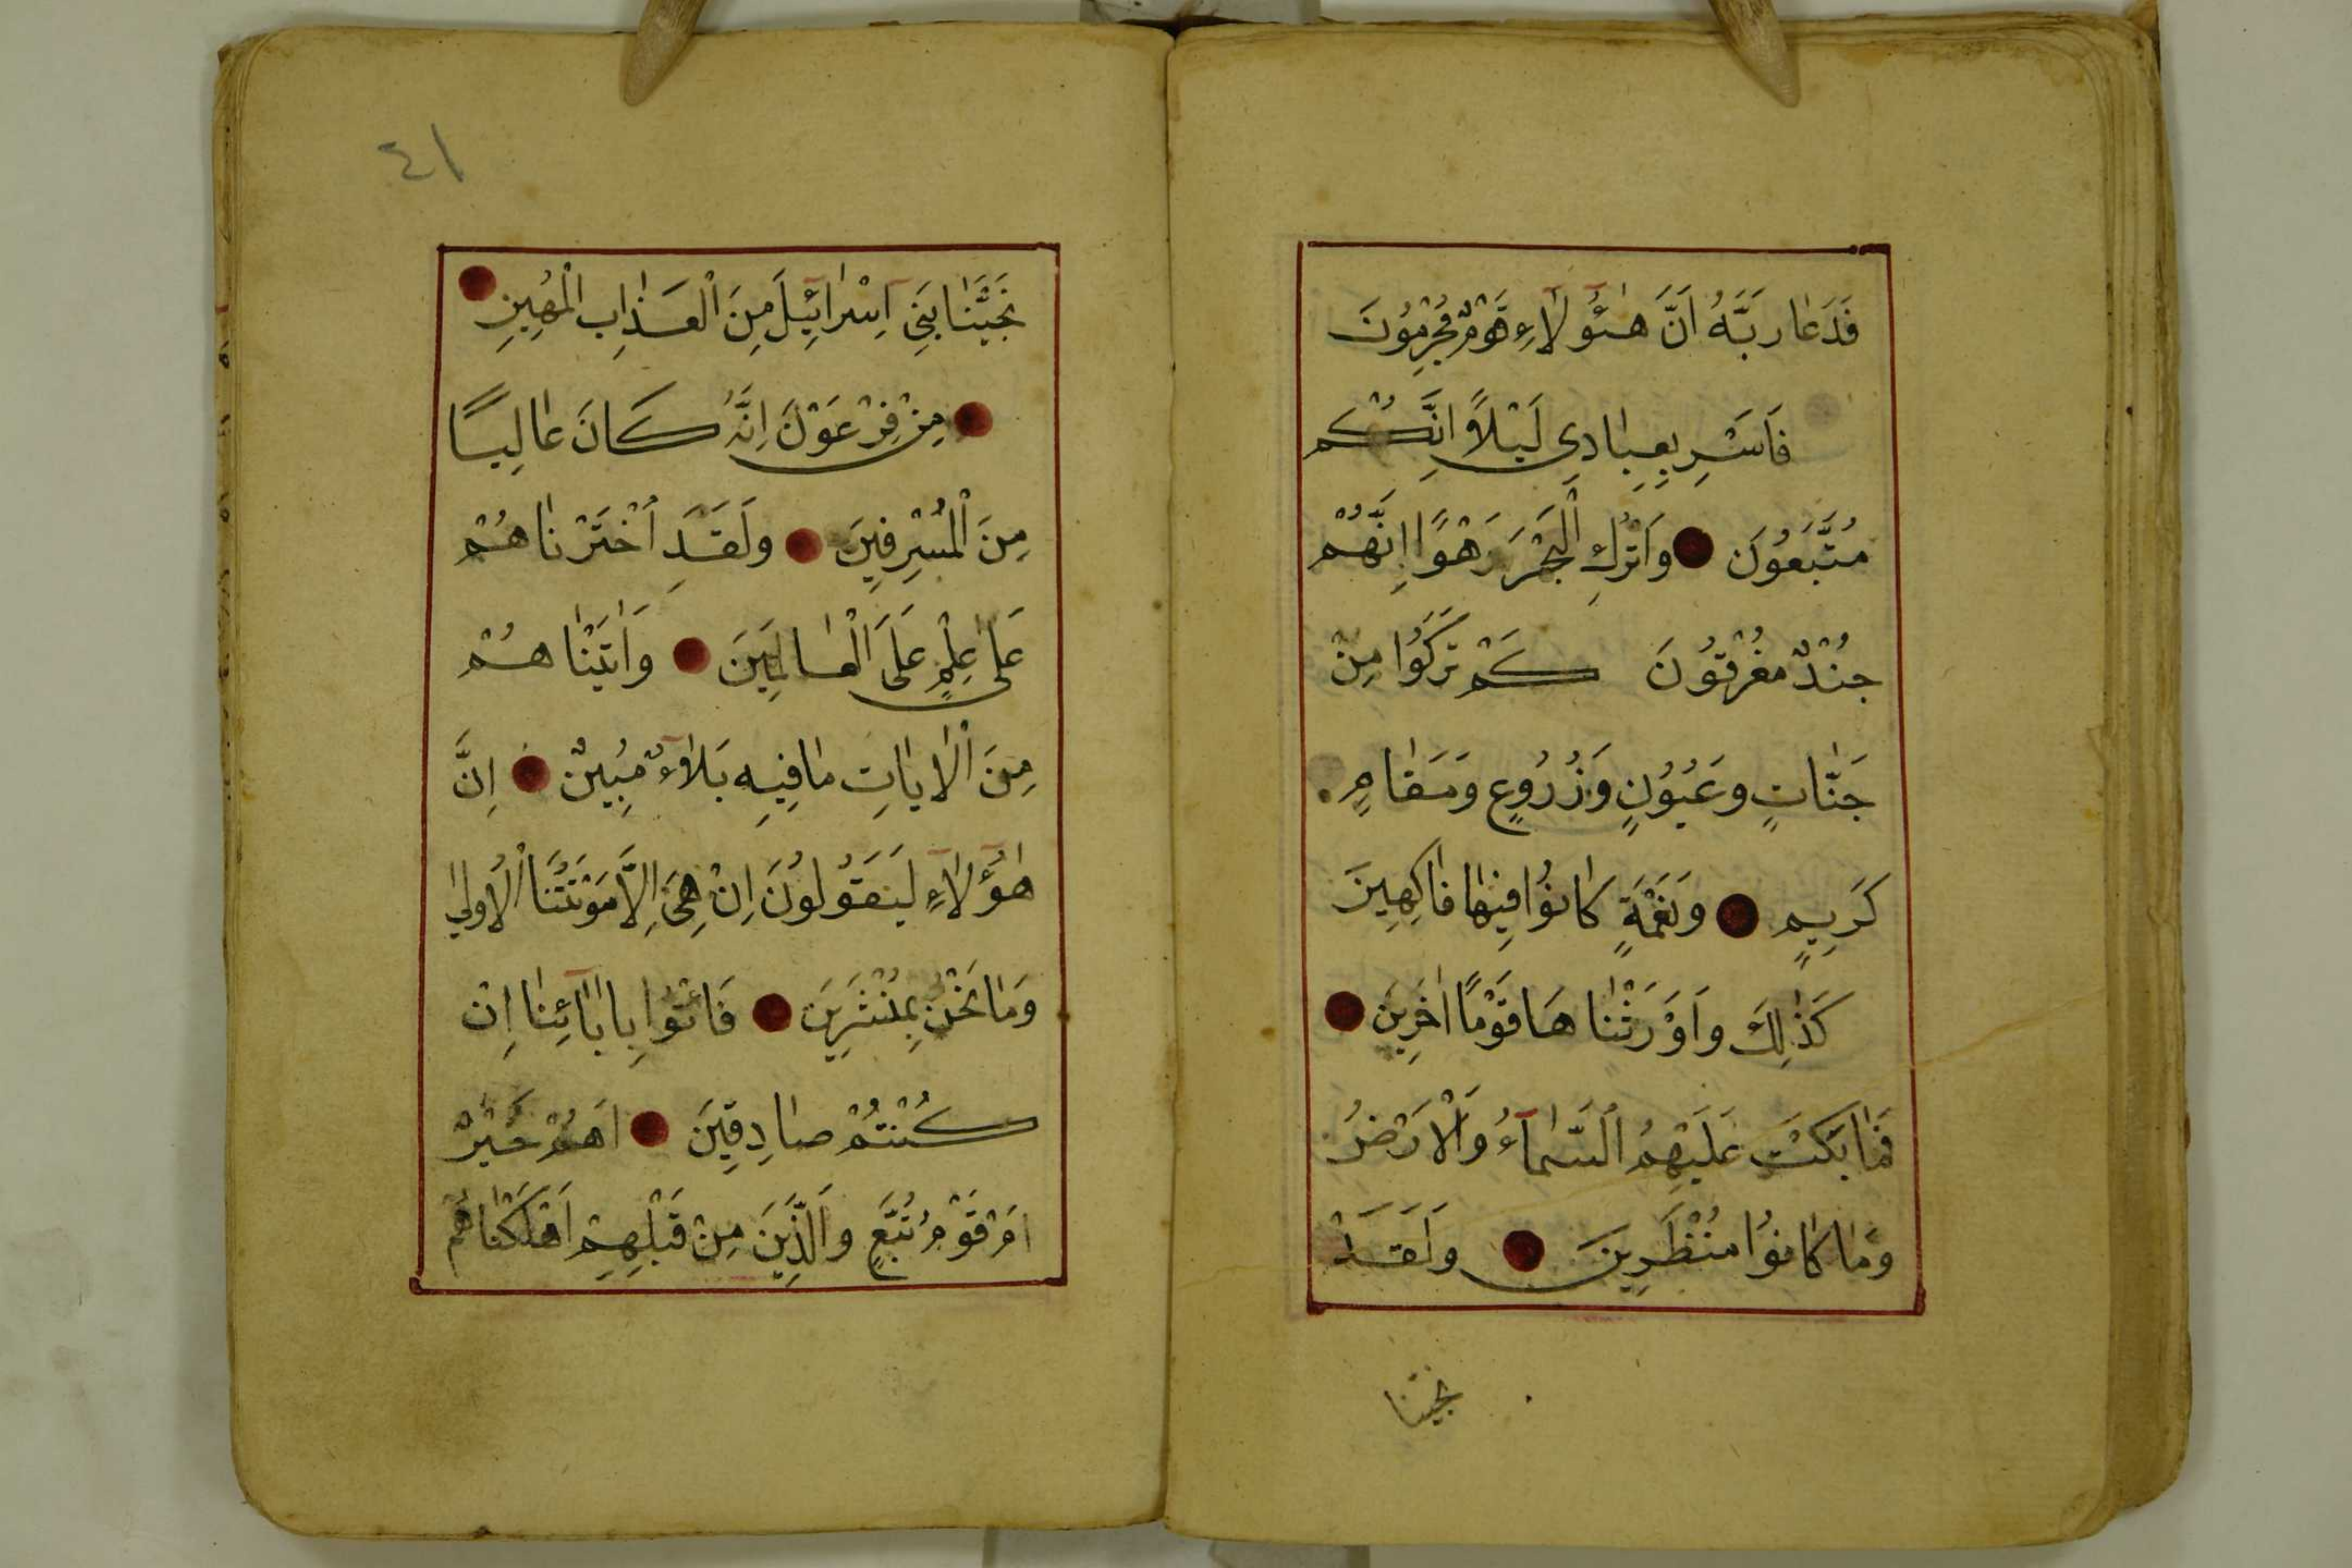 فَدَعَا رَبَّهُ اَنَّ هٰٓؤُلَآءِ قَوْمٌ مُجْرِمُونَ
فَاَسْرِ بِعِبَادِي لَيْلًا اِنَّكُمْ
مُتَّبَعُونَ وَاتْرُكِ الْبَحْرَ رَهْوًا اِنَّهُمْ
جُنْدٌ مُغْرَقُونَ كَمْ تَرَكُوا مِنْ
جَنَّاتٍ وَعُيُونٍ وَزُرُوعٍ وَمَقَامٍ
كَرِيمٍ وَنَعْمَةٍ كَانُوا فِيهَا فَاكِهِينَ
كَذٰلِكَ وَاَوْرَثْنَا هَا قَوْمًا اٰخَرِينَ
فَمَا بَكَتْ عَلَيْهِمُ السَّمَآءُ وَالْاَرْضُ
وَمَا كَانُوا مُنْظَرِينَ وَلَقَدْ
نجينا
٤١
نَجَّيْنَا بَنِي اِسْرَآئِيلَ مِنَ الْعَذَابِ الْمُهِينِ
مِنْ فِرْعَوْنَ اِنَّهُ كَانَ عَالِيًا
مِنَ الْمُسْرِفِينَ وَلَقَدِ اخْتَرْنَا هُمْ
عَلٰى عِلْمٍ عَلَى الْعَالَمِينَ وَاٰتَيْنَا هُمْ
مِنَ الْاٰيَاتِ مَا فِيهِ بَلَآءٌ مُبِينٌ اِنَّ
هٰٓؤُلَآءِ لَيَقُولُونَ اِنْ هِيَ اِلَّا مَوْتَتُنَا الْاُولٰى
وَمَا نَحْنُ بِمُنْشَرِينَ فَاْتُوا بِاٰبَآئِنَا اِنْ
كُنْتُمْ صَادِقِينَ اَهُمْ خَيْرٌ
اَمْ قَوْمُ تُبَّعٍ وَالَّذِينَ مِنْ قَبْلِهِمْ اَهْلَكْنَاهُمْ